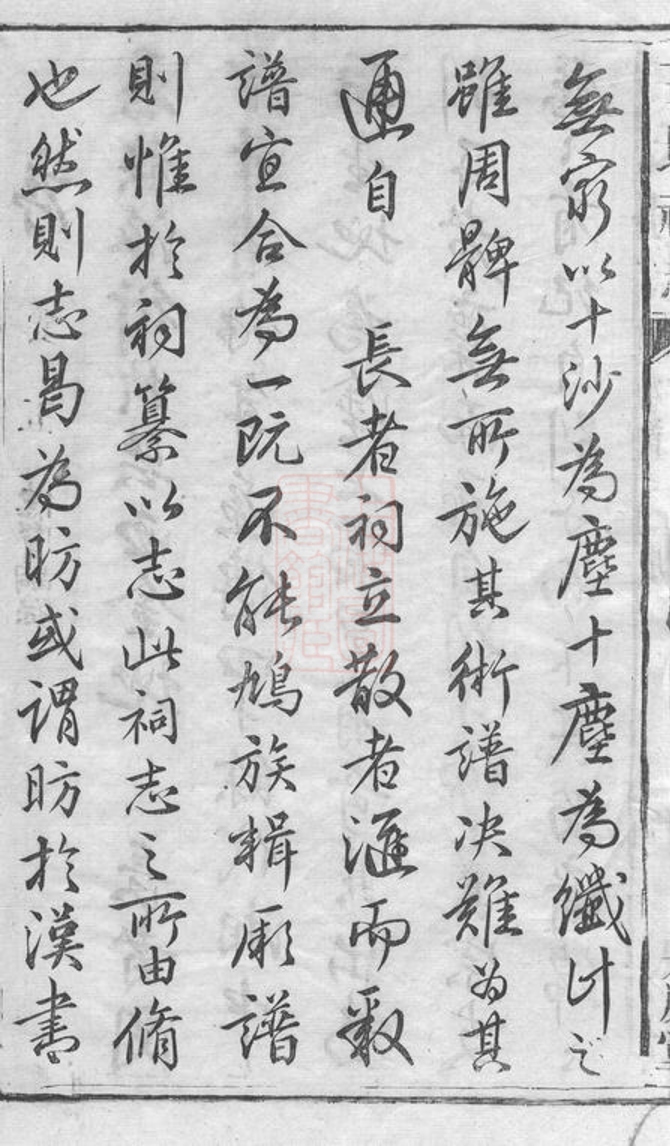 無窮以十沙為塵十塵為纖計之
雖周髀無所施其術譜决難為其
邇自　長者祠立散者滙而數
譜宜合為一既不能鳩族輯厥譜
則惟於祠纂以志此祠志之所由脩
也然則志曷為昉或謂昉於漢書